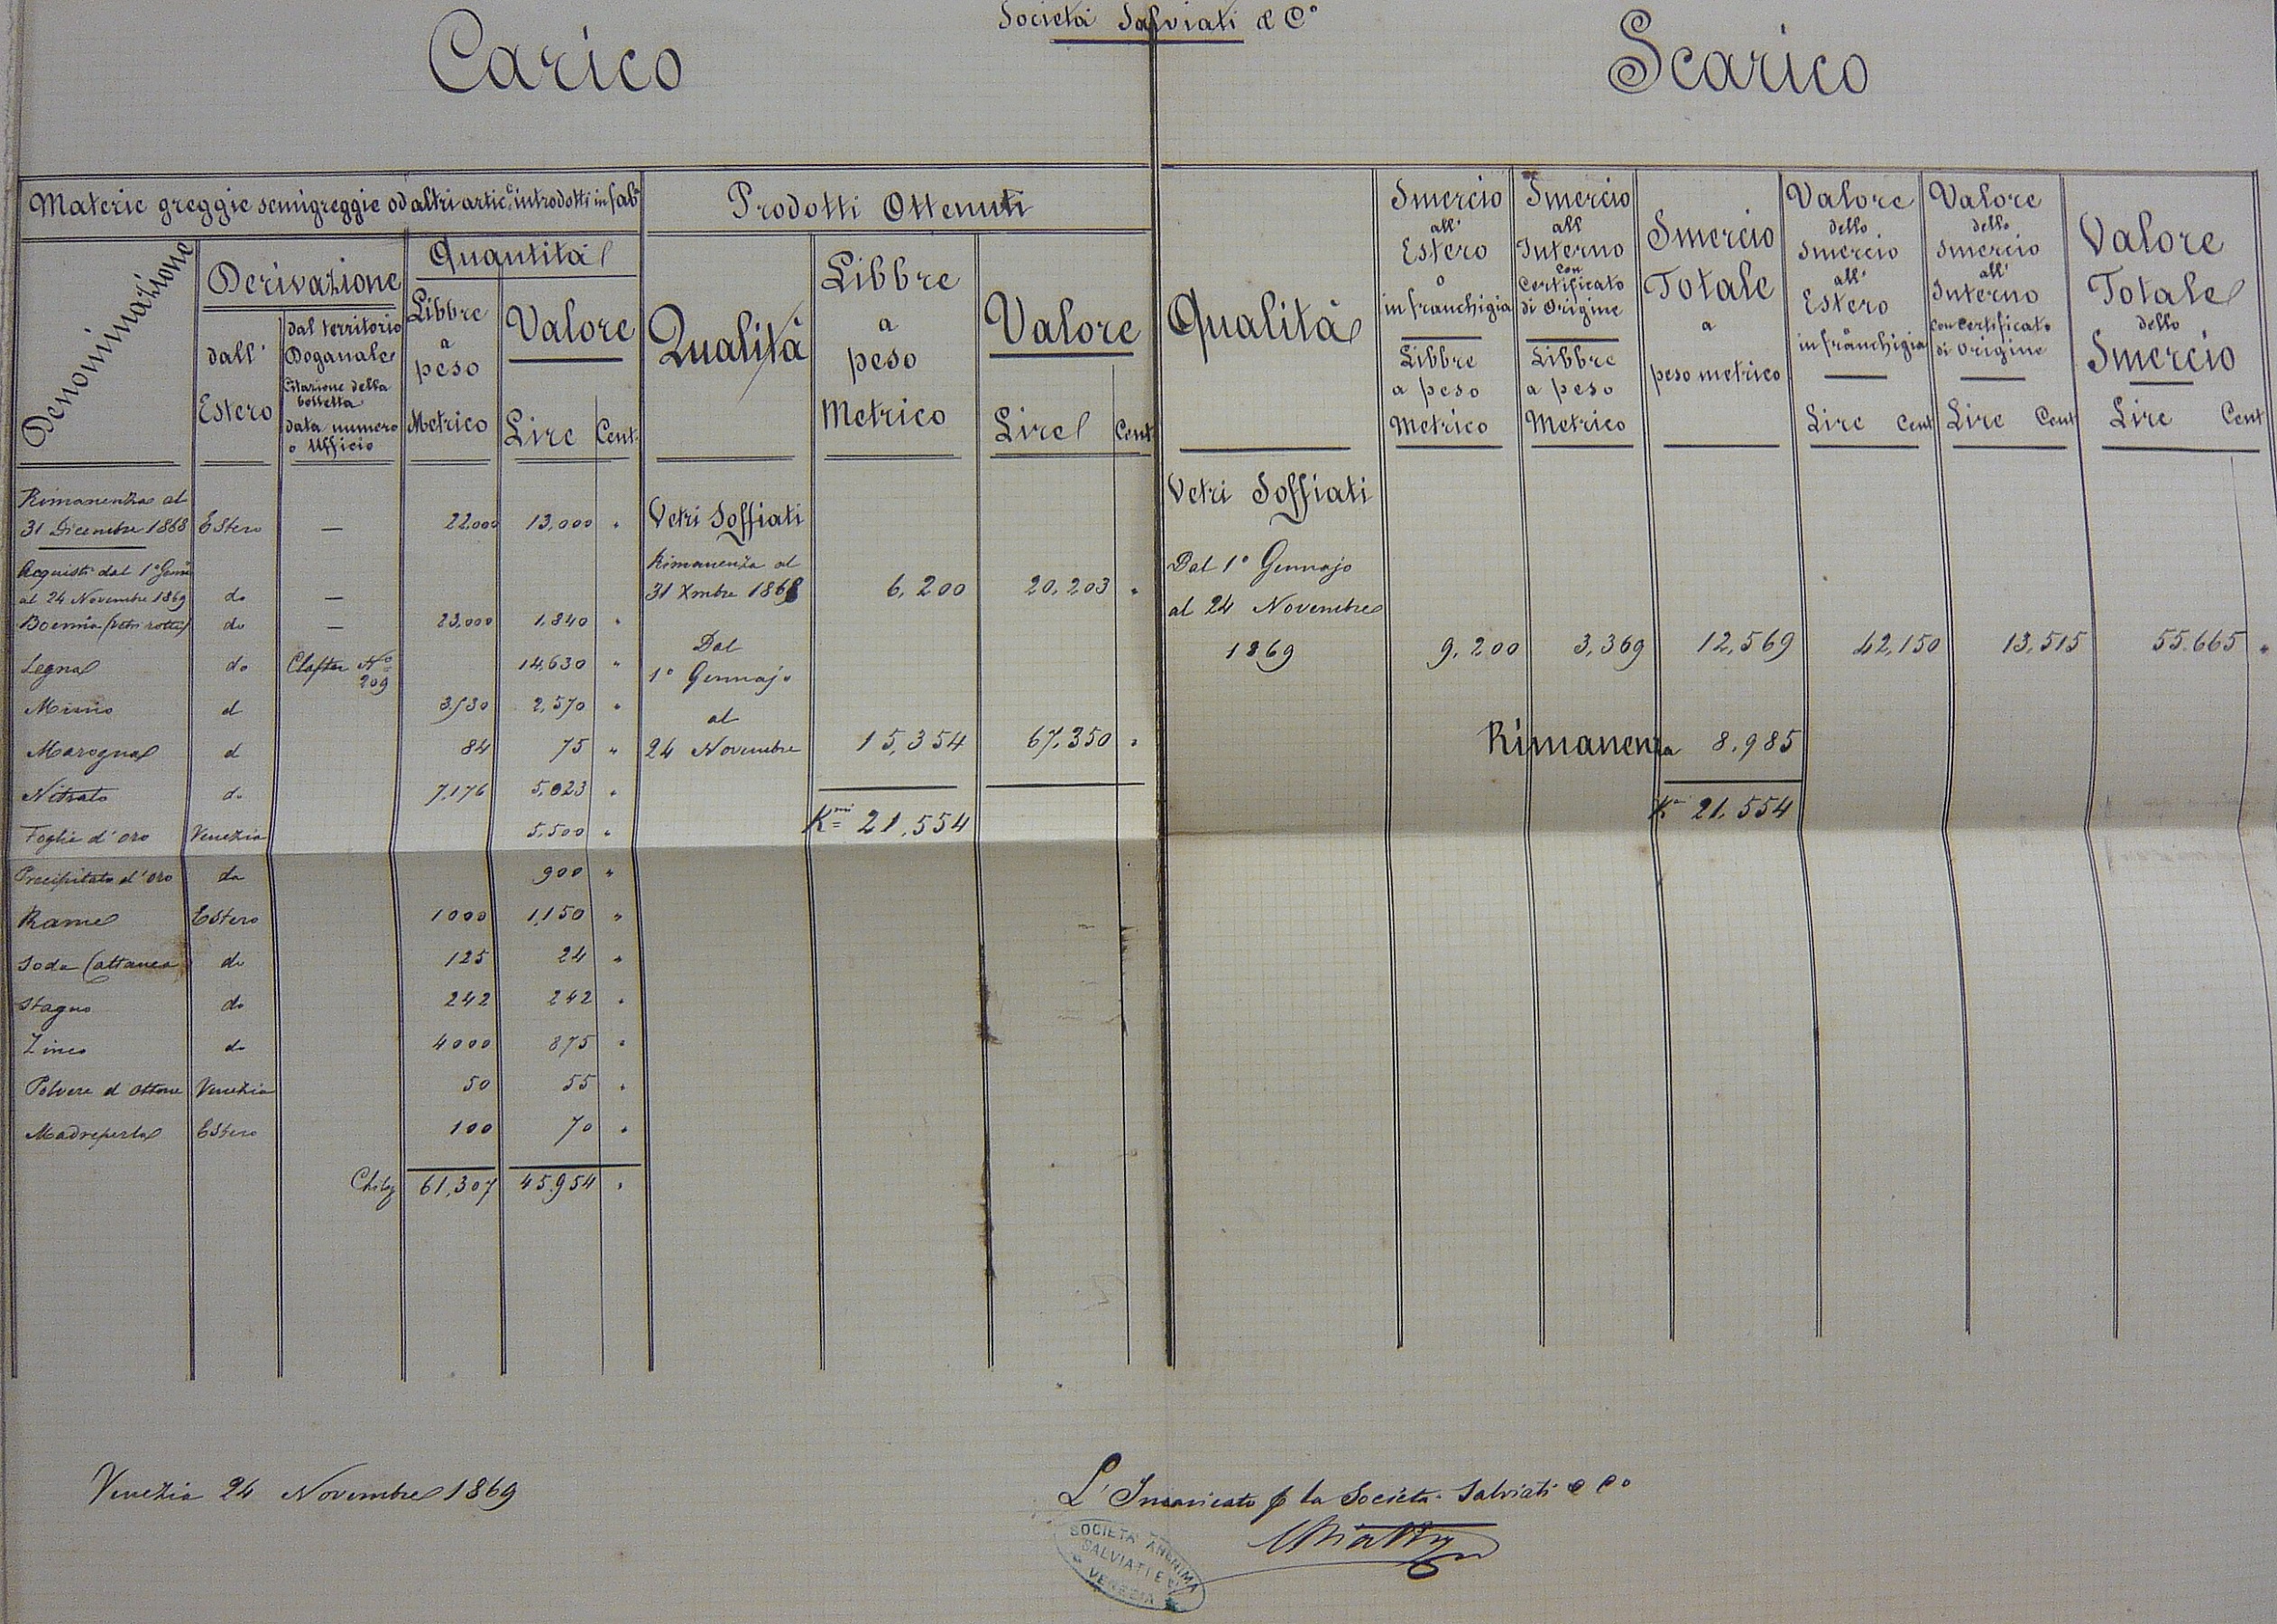 Società Salviati & C°
Carico
Scarico
Materie greggie semigreggie od altri artic.i introdotti in fab.a
Prodotti Ottenuti
Denominazione
Derivazione
dall' Estero
dal territorio Doganale
Citazione della bolletta
data numero o Ufficio
Quantità
Libbre a peso Metrico
Valore
Lire Cent.
Qualità
Libbre a peso Metrico
Valore
Lire Cent
Qualità
Smercio all' Estero o in franchigia
Libbre a peso Metrico
Smercio all' Interno con Certificato di Origine
Libbre a peso Metrico
Smercio Totale a peso metrico
Valore dello Smercio all' Estero in franchigia
Lire Cent
Valore dello Smercio all' Interno con Certificato di Origine
Lire Cent
Valore Totale dello Smercio
Lire Cent
Rimanenza al
31 Dicembre 1868 Estero — 22000 13,000 "
Acquisti dal 1° Genn.
al 24 Novembre 1869 do —
Boemia (vetri rotti) do — 23,000 1,840 "
Legna do Clafter N° 209 14,630 "
Minio d 2,570 "
Marogna d 84 75 "
Nitrato do 7,176 5,023 "
Foglie d'oro Venezia 5,500 "
Precipitato d'oro do 900 "
Rame Estero 1000 1,150 "
Soda Cattanea do 125 24 "
Stagno do 242 242 "
Zinco do 4000 875 "
Polvere d Ottone Venezia 50 55 "
Madreperla Estero 100 70 "
Chilg 61,307 45,954 "
Vetri Soffiati
Rimanenza al
31 Xmbre 1868 6,200 20,203 "
Dal
1° Gennajo
al
24 Novembre 15,354 67,350 "
K.mi 21,554
Vetri Soffiati
Dal 1° Gennajo
al 24 Novembre
1869 9,200 3,369 12,569 42,150 13,515 55.665 "
Rimanenza 8,985
K.mi 21,554
Venezia 24 Novembre 1869
L'Incaricato p la Società Salviati e Co
SOCIETÀ ANONIMA
SALVIATI E C.
VENEZIA